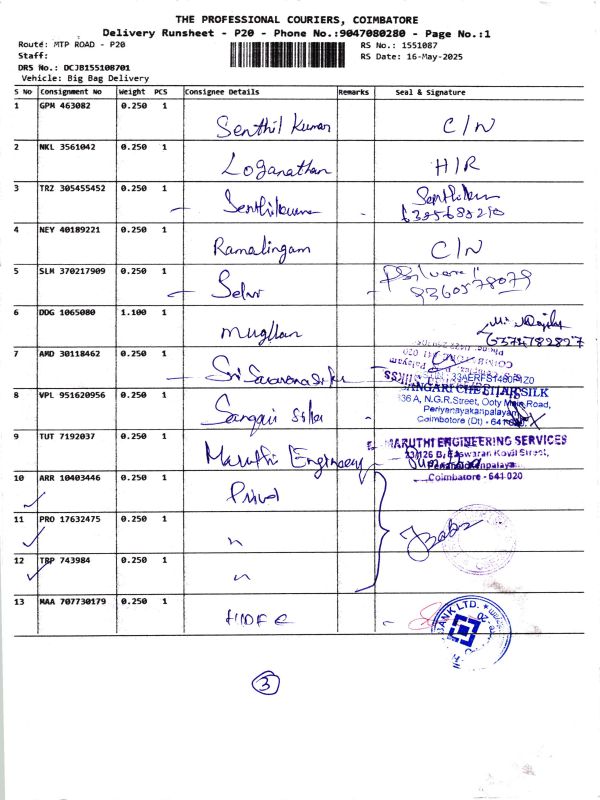 THE PROFESSIONAL COURIERS, COIMBATORE
Delivery Runsheet - P20 - Phone No.:9047080280 - Page No.:1
Route: MTP ROAD - P20
RS No.: 1551087
Staff:
RS Date: 16-May-2025
DRS No.: DCJB155108701
Vehicle: Big Bag Delivery
S No Consignment No Weight PCS Consignee Details Remarks Seal & Signature
1 GPM 463082 0.250 1
Senthil Kumar C/N
2 NKL 3561042 0.250 1
Loganathan H/R
3 TRZ 305455452 0.250 1
Senthilkumar
4 NEY 40189221 0.250 1
Ramalingam C/N
5 SLM 370217909 0.250 1
Selvi
9360578079
6 DDG 1065080 1.100 1
Mugilan
7 AMD 30118462 0.250 1
Sri Saravana silks
33AERFS1460F1Z0
8 VPL 951620956 0.250 1
CHETTIAR SILK
136 A, N.G.R.Street, Ooty Main Road,
Periyanayakanpalayam
Coimbatore (Dt) - 641
9 TUT 7192037 0.250 1
Maruthi Engineering
MARUTHI ENGINEERING SERVICES
Coimbatore - 641 020
10 ARR 10403446 0.250 1
11 PRO 17632475 0.250 1
"
12 TBP 743984 0.250 1
"
13 MAA 707730179 0.250 1
HDFC
BANK LTD.
3